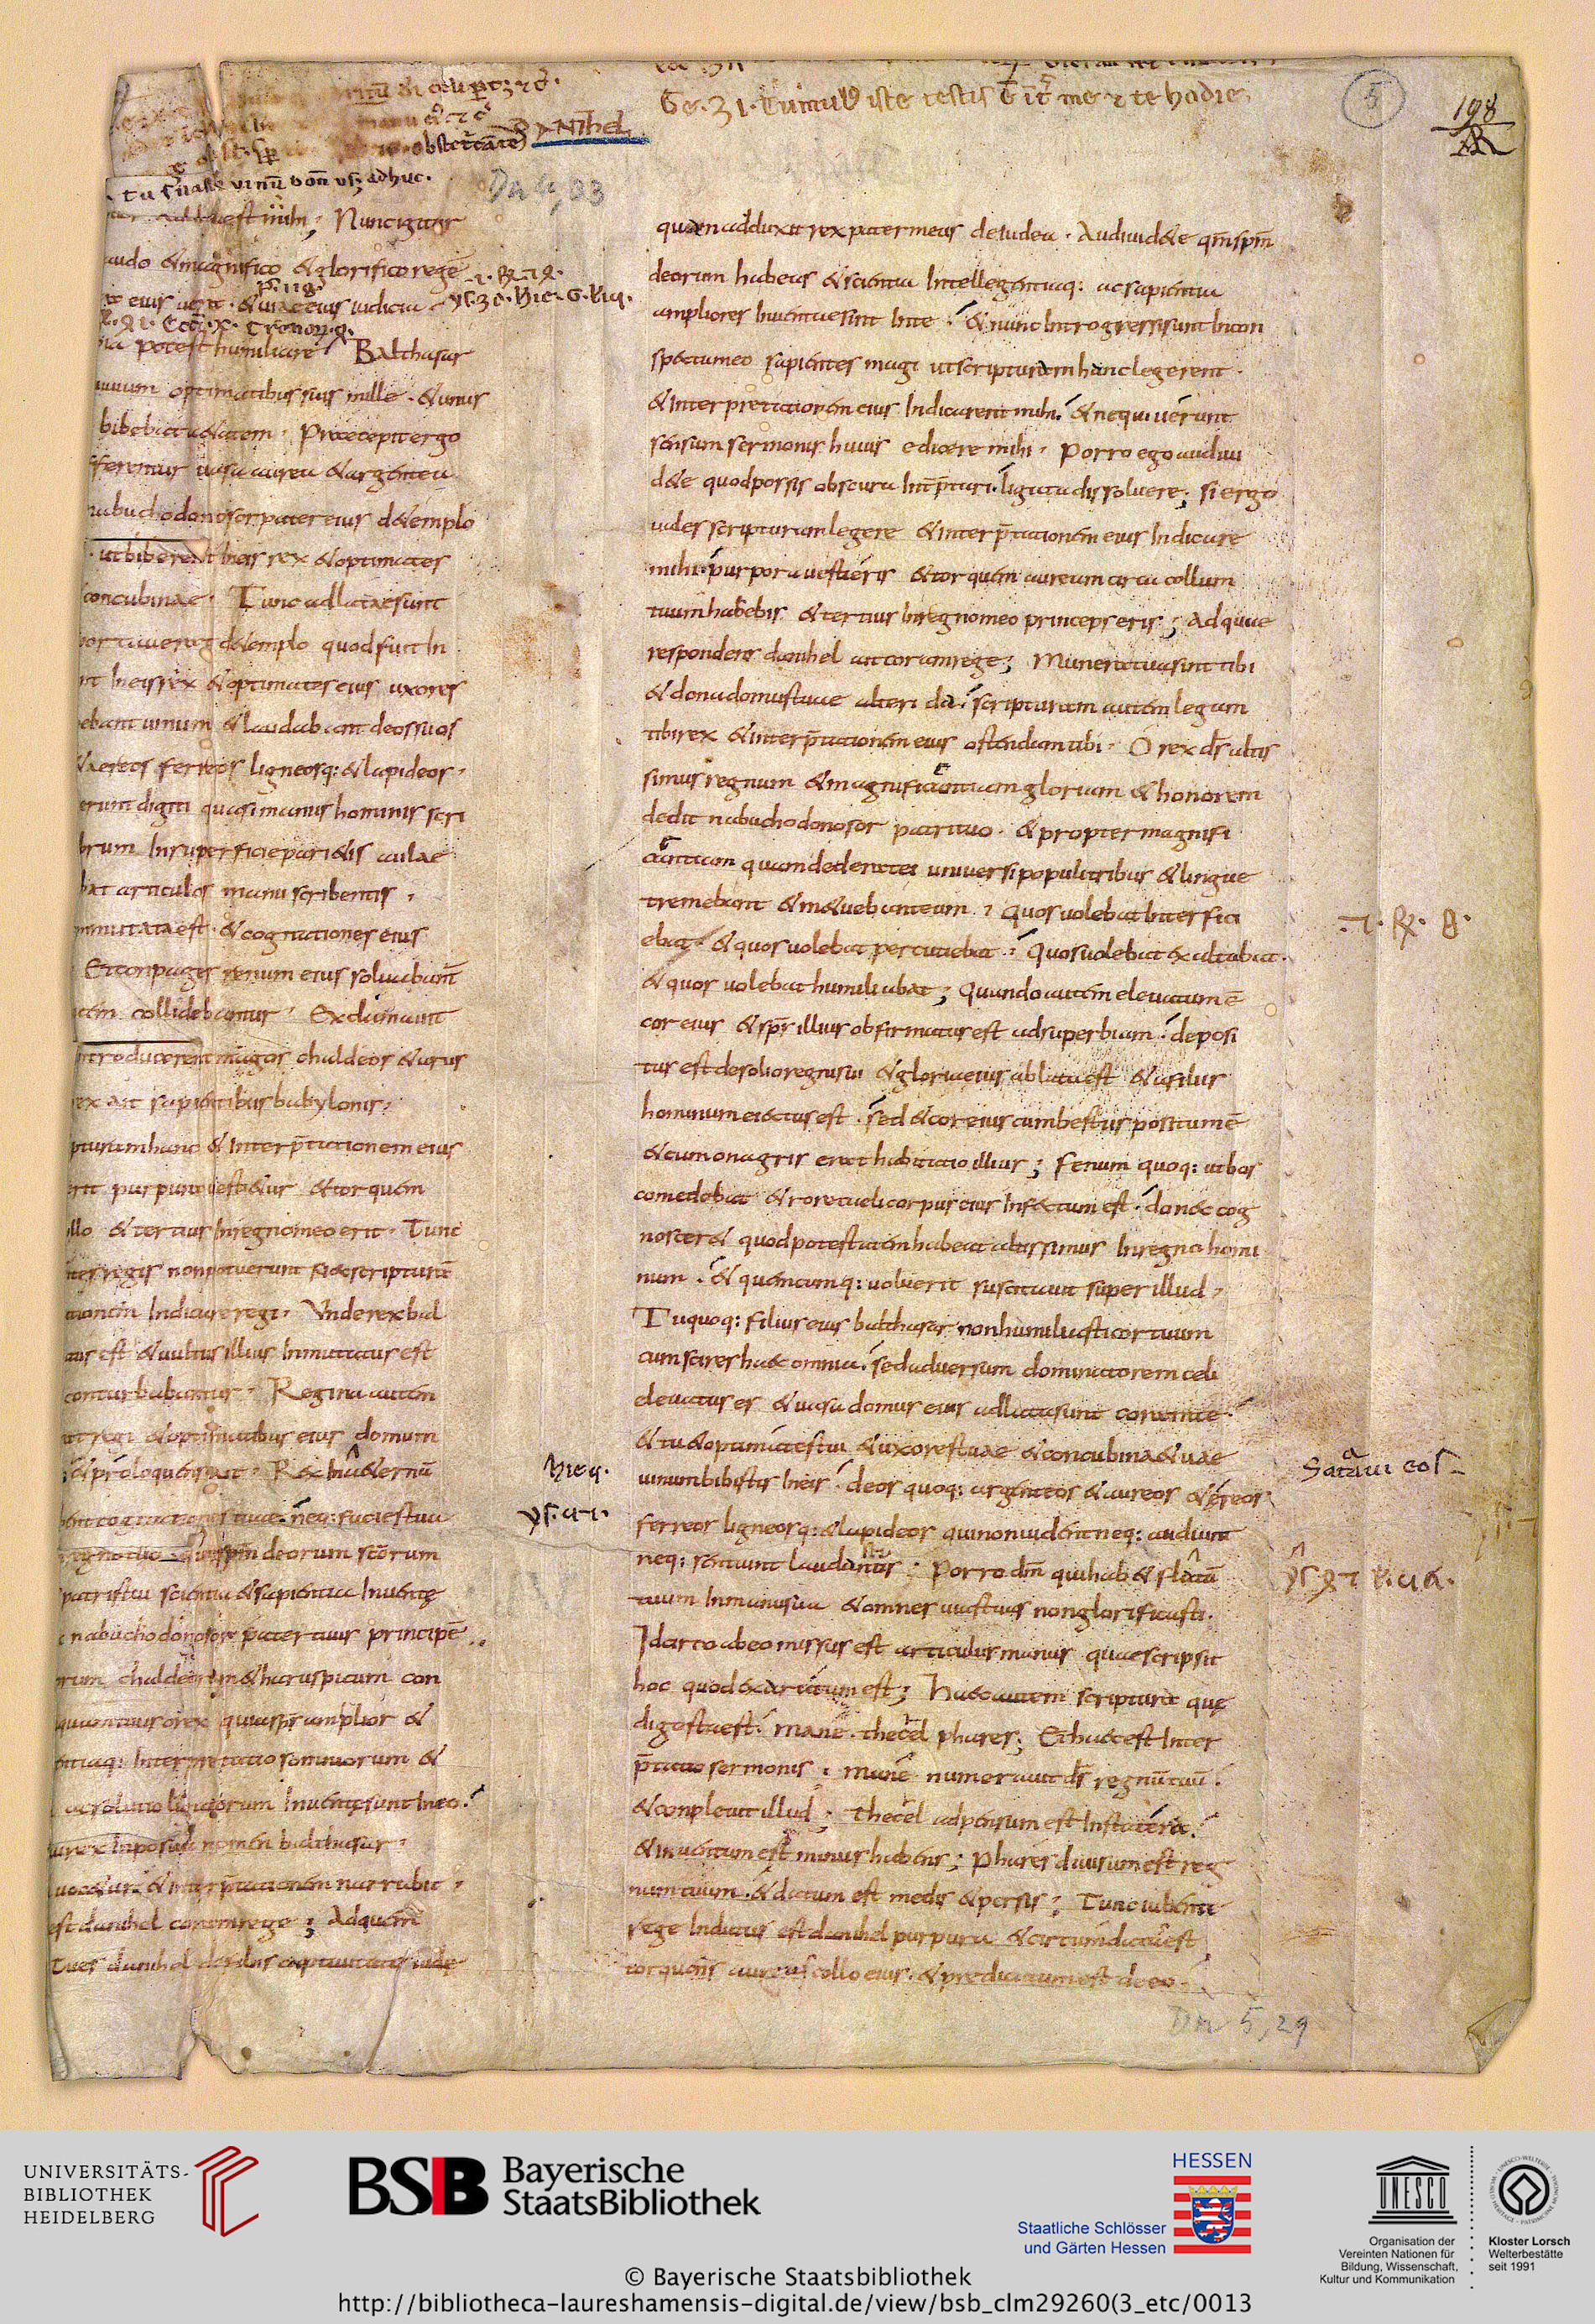 DANIHEL
Ge. 31. Tumul iste testis
5
198
tu vinū adhuc.
Dn 4, 33
est mihi; Nunc igitur
audo & magnifico & glorifico regē
eius & viae eius iudicia
ia potest humiliare; Balthasar
optimatibus suis mille. & unus
bibebat aetatem. Praecepit ergo
fferentur uasa aurea & argentea
nabuchodonosor pater eius de templo
utbiberent In eis rex & optimates
concubinae. Tunc adlatae sunt
de templo quod fuit In
In eis rex & optimates eius uxores
ebant uinum & laudabant deos suos
aereos ferreos ligneosq: & lapideos.
erunt digiti quasi manus hominis scri
brum. In superficie parietis aulae
bat articulos manus scribentis.
mmutata est. & cogitationes eius
Et conpages renum eius soluebant
collidebantur. Exclamauit
ntroducerent magos chaldeos & arus
rex ait sapientibus babylonis.
pturam hanc & Interp̄tationem eius
purpura uesti&ur & torquem
llo & tertius In regno meo erit. Tunc
regis non potuerunt nec scripturā
tionem Indicare regi. Unde rex bal
tus est & uultus illius Inmutatus est
conturbabantur. Regina autem
regi & optimatibus eius domum
& proloquens ait. Rex In &ernū
cogitationes tuae. neq: facies tua
regno tuo spm̄ deorum scōrum
patris tui scientia & sapientia Inuentę
nabuchodonosor pater tuus principē
rum chaldeorum & haruspicum con
tuus o rex quia sps̄ amplior &
ntiaq: Interpretatio somniorum &
ac solutio ligatorum Inuentę sunt In eo.
rex Inposuit nomen balthasar.
uoc&ur. & Interp̄tationem narrabit.
est danihel coram rege; Ad quem
Tu es danihel de filiis captiuitatis iudę
quem adduxit rex pater meus de iudea. Audiui de te qm̄ spm̄
deorum habeas & scientia Intellegentiaq: ac sapientia
ampliores Inuentae sint In te. & nunc Introgressi sunt In con
spectu meo sapientes magi ut scripturam hanc legerent.
& Interpretationem eius Indicarent mihi. & nequiuerunt
sensum sermonis huius edicere mihi. Porro ego audiui
de te quod possis obscura Interp̄tari. ligata dissoluere; si ergo
uales scripturam legere & Interp̄tationem eius Indicare
mihi. purpora uestieris & torquem aureum circa collum
tuum habebis & tertius In regno meo princeps eris; Ad quae
respondens danihel ait coram rege; Munera tua sint tibi
& dona domus tuae alteri da. scripturam autem legam
tibi rex & Interp̄tationem eius ostendam tibi. O rex ds̄ altis
simus regnum & magnificentiam gloriam & honorem
dedit nabuchodonosor patri tuo. & propter magnifi
centiam quam dederat ei uniuersi populi tribus & lingue
tremebant & metuebant eum. Quos uolebat Interfici
ebat. & quos uolebat percutiebat. Quos uolebat exaltabat.
& quos uolebat humiliabat; Quando autem eleuatum ē
cor eius & sps̄ illius obfirmatus est ad superbiam. deposi
tus est de solio regni sui & gloria eius ablata est & a filiis
hominum eiectus est. sed & cor eius cum bestiis positum ē
& cum onagris erat habitatio illius; Fenum quoq: ut bos
comedebat & rore caeli corpus eius Infectum est. donec cog
nosceret quod potestatem habeat altissimus In regno homi
num. & quemcumq: uoluerit suscitauit super illud.
Tu quoq: filius eius balthasar non humiliasti cor tuum
cum scires haec omnia. sed aduersum dominatorem celi
eleuatus es & uasa domus eius adlata sunt coram te.
& tu & optimates tui & uxores tuae & concubinae tuae
uinum bibistis In eis. deos quoq: argenteos & aureos & ereos
ferreos ligneosq: & lapideos qui non uident neq: audiunt
neq: sentiunt laudastis; Porro dm̄ qui hab& flatū
tuum In manu sua & omnes uias tuas non glorificasti.
Idcirco ab eo missus est articulus manus quae scripsit
hoc quod exaratum est; Haec autem scriptura quę
digesta est. mane. thecel phares; Et haec est Inter
p̄tatio sermonis. mane numerauit ds̄ regnū tuū.
& conpleuit illud; thecel adpensum est In statera.
& Inuentum est minus habens; phares diuisum est reg
num tuum. & datum est medis & persis; Tunc iubente
rege Indutus est danihel purpura & circumdata est
torques aureus collo eius. & predicatum est de eo.
Hie
ys.
Satiaui eos
Dn 5, 29
UNIVERSITÄTS-
BIBLIOTHEK
HEIDELBERG
BSB Bayerische
StaatsBibliothek
HESSEN
Staatliche Schlösser
und Gärten Hessen
UNESCO
Organisation der
Vereinten Nationen für
Bildung, Wissenschaft,
Kultur und Kommunikation
Kloster Lorsch
Welterbestätte
seit 1991
© Bayerische Staatsbibliothek
http://bibliotheca-laureshamensis-digital.de/view/bsb_clm29260(3_etc/0013